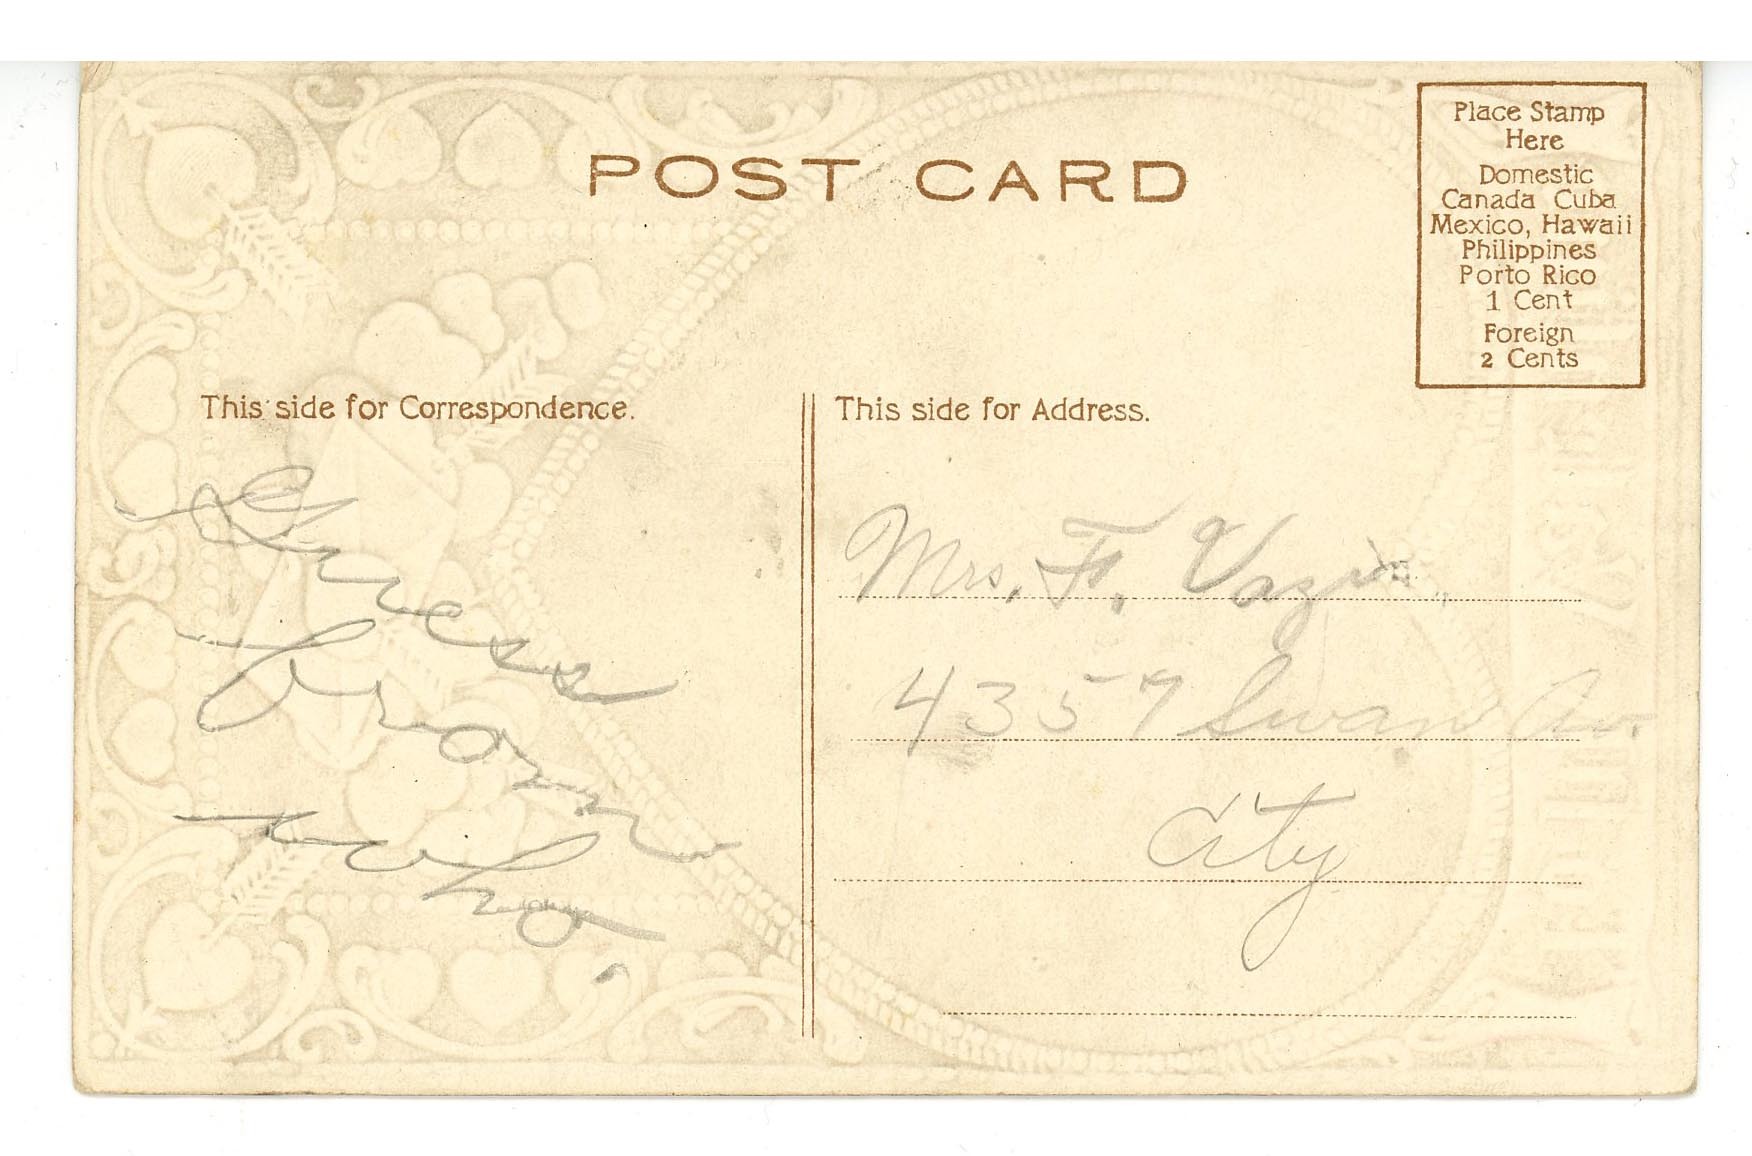 POST CARD
Place Stamp
Here
Domestic
Canada Cuba
Mexico, Hawaii
Philippines
Porto Rico
1 Cent
Foreign
2 Cents
This side for Correspondence.
This side for Address.
Guess
from
who.
Mrs. F.
4357 Swan Av.
City